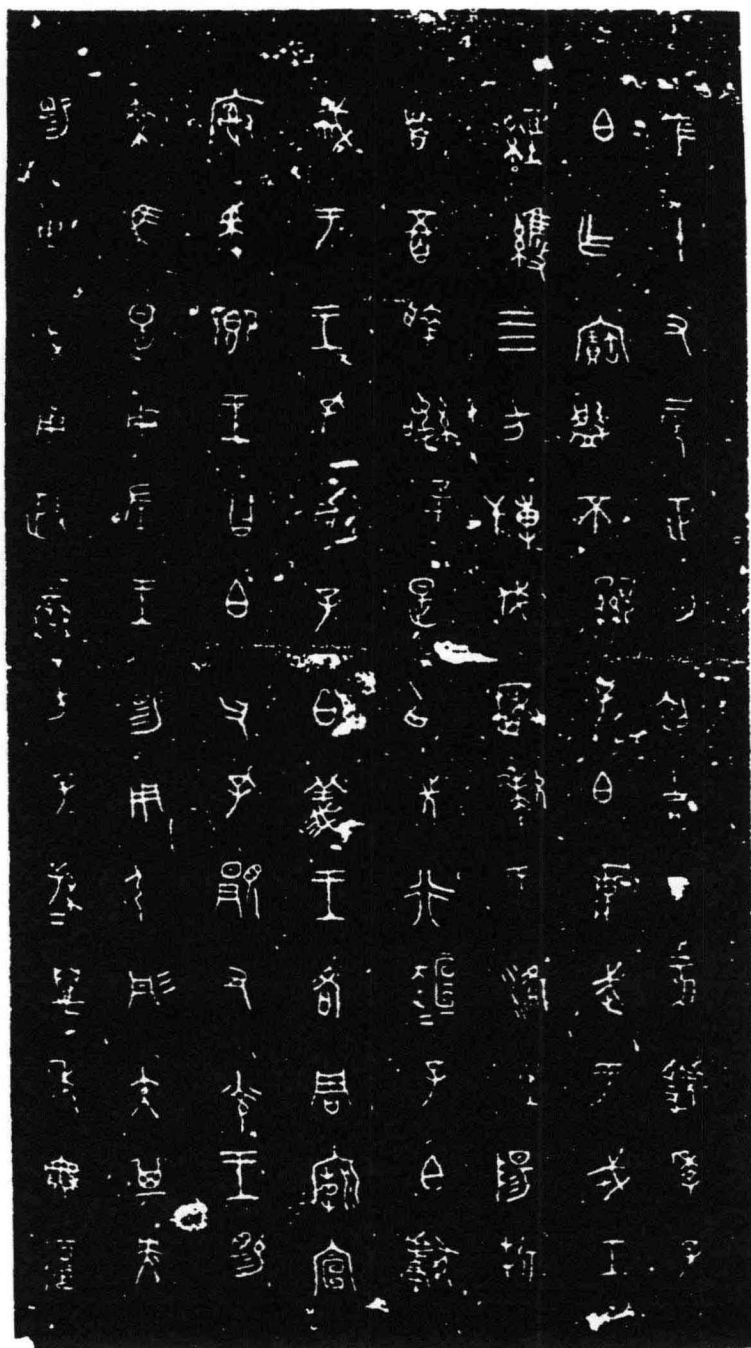 隹十又二年正月初吉丁亥虢季子
白乍寶盤不顯子白壯武于戎工
經維四方搏伐玁狁于洛之陽折
首五百執訊五十是以先行桓桓子白獻
聝于王王孔加子白義王各周廟宣
廚爰鄉王曰白父孔覭又光王賜
乘馬是用左王賜用弓彤矢其央
賜用戉用政蠻方子子孫孫萬年無疆